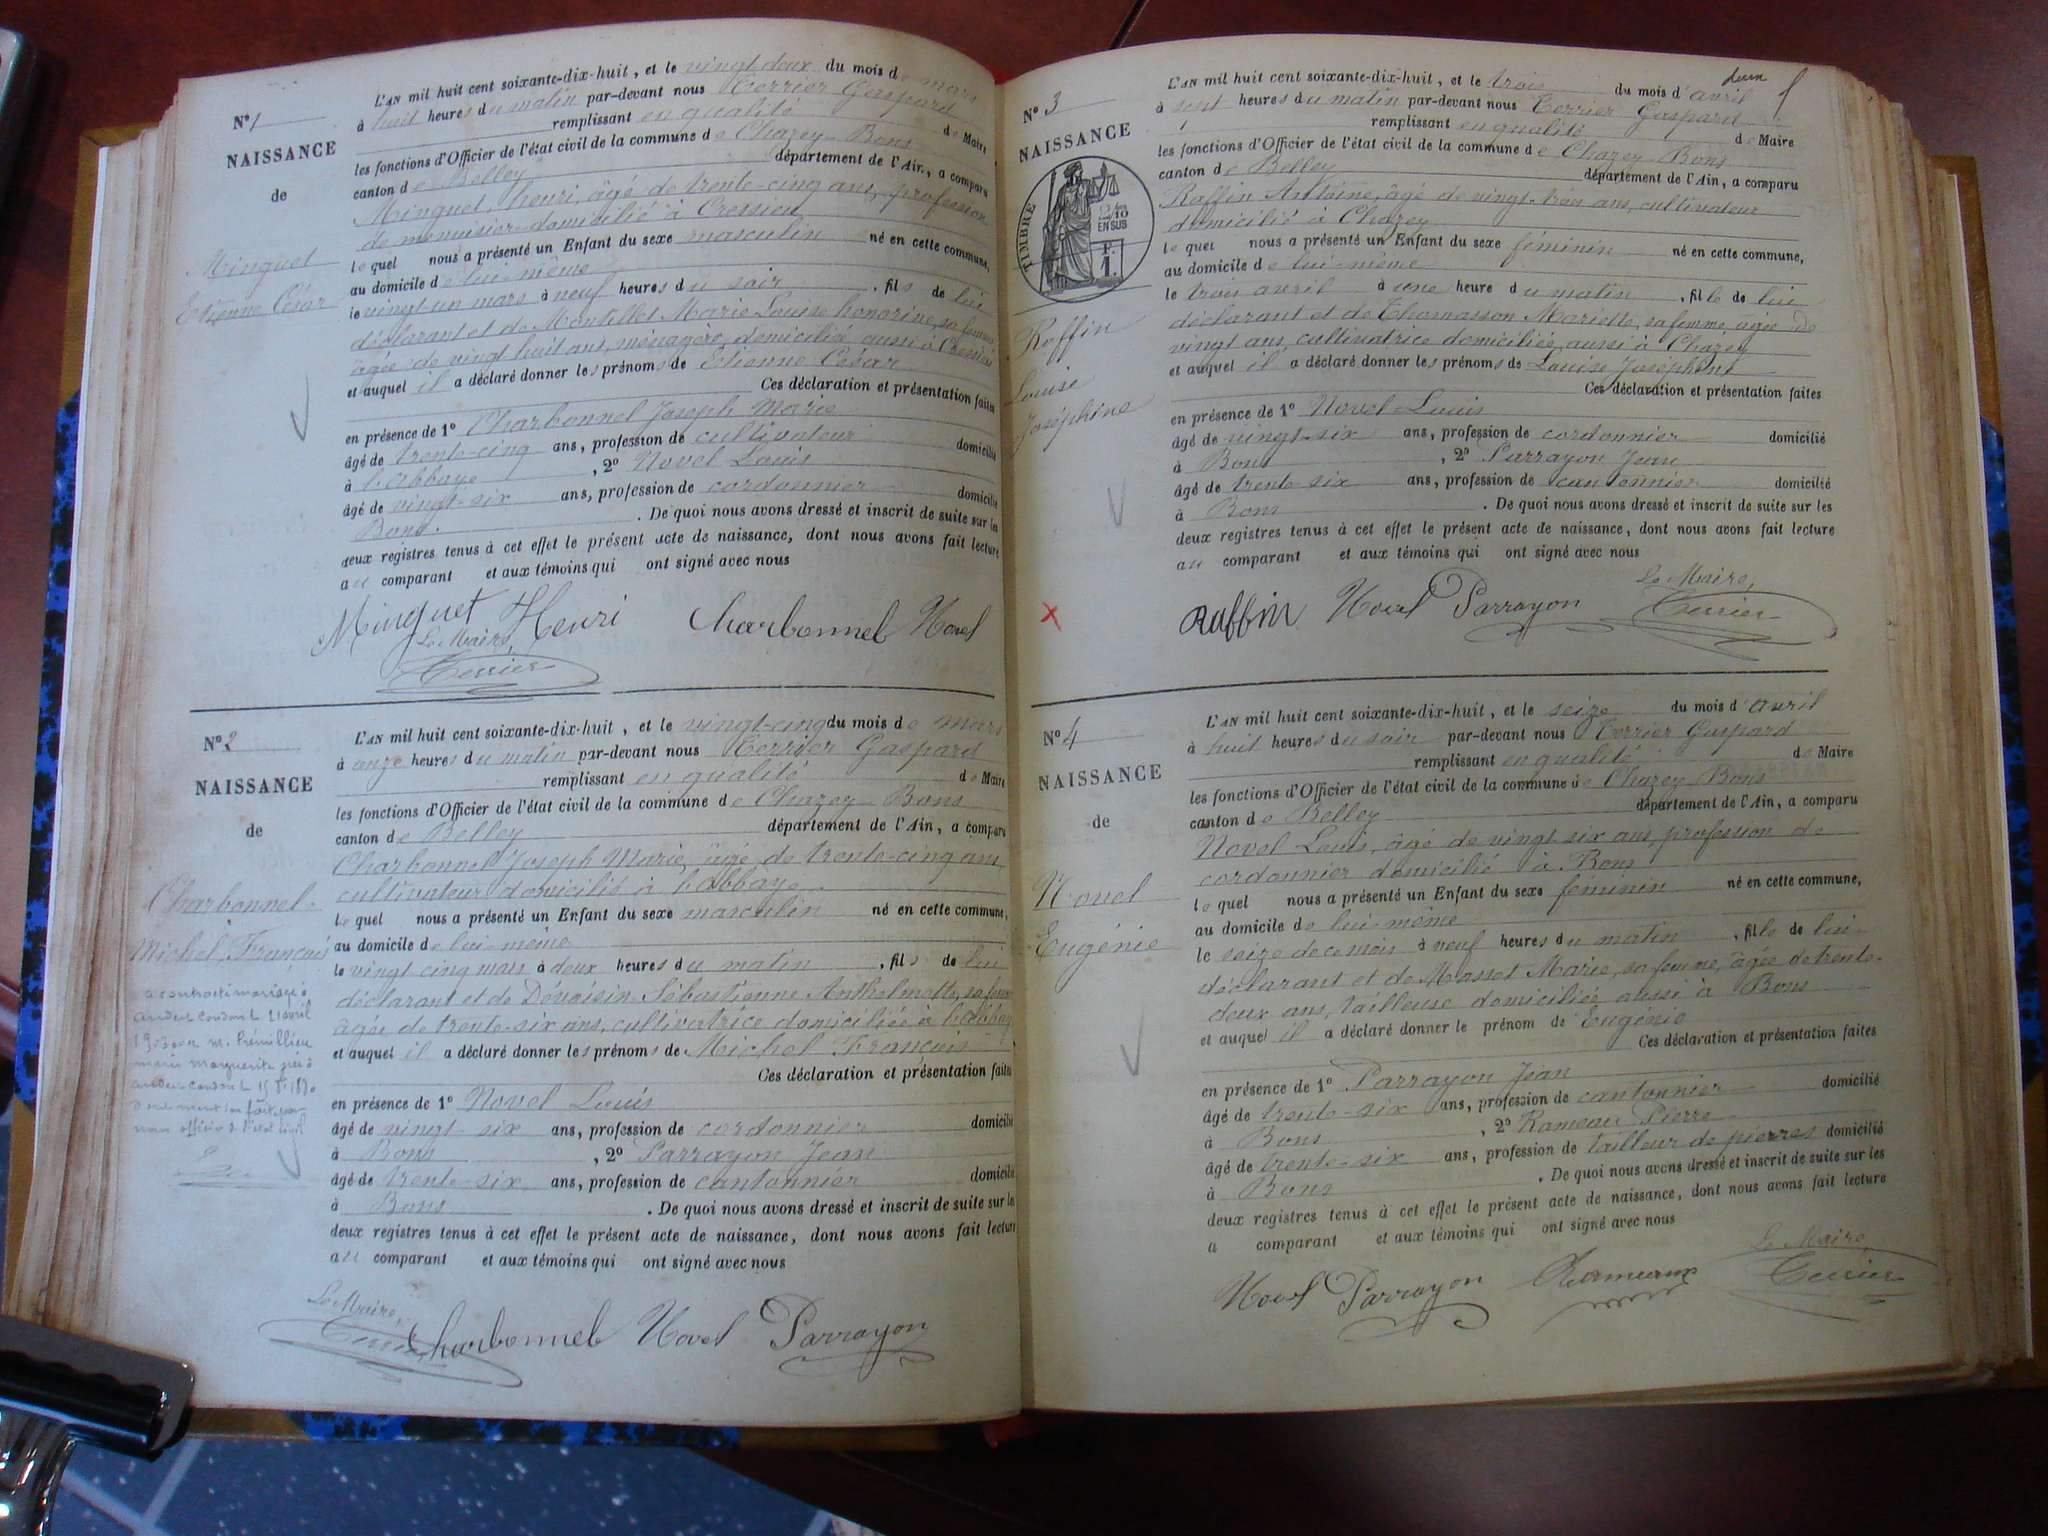 N° 1
NAISSANCE
de
Minguet
Etienne César
L'AN mil huit cent soixante-dix-huit, et le vingt deux du mois de mars
à huit heures du matin par-devant nous Terrier Gaspard
remplissant en qualité de Maire
les fonctions d'Officier de l'état civil de la commune de Chazey-Bons
canton de Belley département de l'Ain, a comparu
Minguet, henri, âgé de trente-cinq ans, profession
de menuisier domicilié à Cressieu
lequel nous a présenté un Enfant du sexe masculin né en cette commune,
au domicile de lui même
le vingt-un mars à neuf heures du soir, fils de lui
déclarant et de Montillet Marie Louise honorine, sa femme
âgée de vingt huit ans, ménagère, domiciliée aussi à Cressieu
et auquel il a déclaré donner les prénoms de Etienne César
Ces déclaration et présentation faites
en présence de 1° Charbonnel Joseph Marie
âgé de trente-cinq ans, profession de cultivateur domicilié
à l'abbaye, 2° Novel Louis
âgé de vingt-six ans, profession de cordonnier domicilié
Bons. De quoi nous avons dressé et inscrit de suite sur les
deux registres tenus à cet effet le présent acte de naissance, dont nous avons fait lecture
au comparant et aux témoins qui ont signé avec nous
Minguet Henri Charbonnel Novel
Le Maire,
Terrier
N° 2
NAISSANCE
de
Charbonnel
Michel François
a contracté mariage à
Andert Condon le 21 avril
1903 avec m. Prémillieu
marie marguerite née à
Andert condon le 15 1880
L'AN mil huit cent soixante-dix-huit, et le vingt-cinq du mois de mars
à onze heures du matin par-devant nous Terrier Gaspard
remplissant en qualité de Maire
les fonctions d'Officier de l'état civil de la commune de Chazey-Bons
canton de Belley département de l'Ain, a comparu
Charbonnel Joseph Marie, âgé de trente-cinq ans,
cultivateur domicilié à l'abbaye
lequel nous a présenté un Enfant du sexe masculin né en cette commune,
au domicile de lui-même
le vingt cinq mars à deux heures du matin, fils de lui
déclarant et de Dévoisin Sébastienne Anthelmette, sa femme
âgée de trente-six ans, cultivatrice domiciliée à l'abbaye
et auquel il a déclaré donner les prénoms de Michel François
Ces déclaration et présentation faites
en présence de 1° Novel Louis
âgé de vingt-six ans, profession de cordonnier domicilié
à Bons, 2° Parrayon Jean
âgé de trente-six ans, profession de cantonnier domicilié
à Bons. De quoi nous avons dressé et inscrit de suite sur les
deux registres tenus à cet effet le présent acte de naissance, dont nous avons fait lecture
au comparant et aux témoins qui ont signé avec nous
Le Maire,
Terrier Charbonnel Novel Parrayon
deux
N° 3
NAISSANCE
TIMBRE
2/10
EN SUS
F.
1.
Raffin
Louise
Joséphine
L'AN mil huit cent soixante-dix-huit, et le trois du mois d'avril
à sept heures du matin par-devant nous Terrier Gaspard
remplissant en qualité de Maire
les fonctions d'Officier de l'état civil de la commune de Chazey-Bons
canton de Belley département de l'Ain, a comparu
Raffin Antoine, âgé de vingt-trois ans, cultivateur
domicilié à Chazey
lequel nous a présenté un Enfant du sexe féminin né en cette commune,
au domicile de lui-même
le trois avril à une heure du matin, fille de lui
déclarant et de Thomasson Mariette, sa femme, âgée de
vingt ans, cultivatrice domiciliée aussi à Chazey
et auquel il a déclaré donner les prénoms de Louise Joséphine
Ces déclaration et présentation faites
en présence de 1° Novel Louis
âgé de vingt-six ans, profession de cordonnier domicilié
à Bons, 2° Parrayon Jean
âgé de trente-six ans, profession de cantonnier domicilié
à Bons. De quoi nous avons dressé et inscrit de suite sur les
deux registres tenus à cet effet le présent acte de naissance, dont nous avons fait lecture
au comparant et aux témoins qui ont signé avec nous
Le Maire,
Raffin Novel Parrayon Terrier
N° 4
NAISSANCE
de
Novel
Eugénie
L'AN mil huit cent soixante-dix-huit, et le seize du mois d'avril
à huit heures du soir par-devant nous Terrier Gaspard
remplissant en qualité de Maire
les fonctions d'Officier de l'état civil de la commune de Chazey-Bons
canton de Belley département de l'Ain, a comparu
Novel Louis, âgé de vingt-six ans, profession de
cordonnier domicilié à Bons
lequel nous a présenté un Enfant du sexe féminin né en cette commune,
au domicile de lui-même
le seize de ce mois à neuf heures du matin, fille de lui-
déclarant et de Masset Marie, sa femme, âgée de trente-
deux ans, tailleuse domiciliée aussi à Bons
et auquel il a déclaré donner le prénom de Eugénie
Ces déclaration et présentation faites
en présence de 1° Parrayon Jean
âgé de trente-six ans, profession de cantonnier domicilié
à Bons, 2° Rameau Pierre
âgé de trente-six ans, profession de tailleur de pierres domicilié
à Bons. De quoi nous avons dressé et inscrit de suite sur les
deux registres tenus à cet effet le présent acte de naissance, dont nous avons fait lecture
a comparant et aux témoins qui ont signé avec nous
Le Maire,
Novel Parrayon Terrier